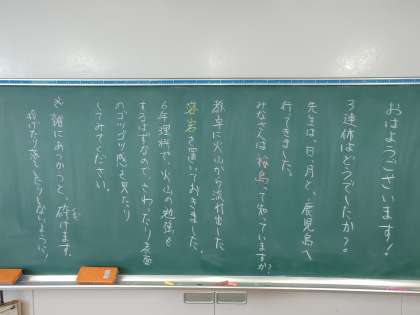 おはようございます！
３連休はどうでしたか？
先生は、日、月と、鹿児島へ
行ってきました。
みなさんは桜島って知っていますか？
教卓に火山から流れ出した
溶岩を置いておきました。
６年理科で、火山の勉強も
するはずなので、さわったり表面
のゴツゴツ感を見たり
してみてください。
※誰にあつかうと、砕けます。
投げたり落としたりしないように！